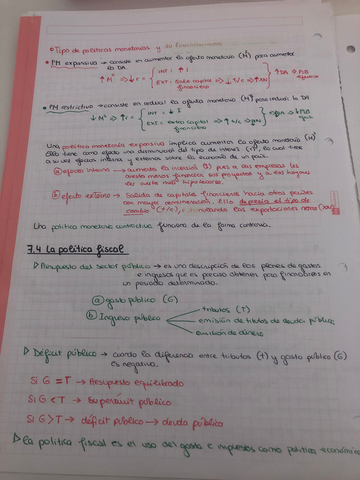 • Tipo de políticas monetarias y su funcionamiento
• PM expansiva → consiste en aumentar la oferta monetaria (M) para aumentar la DA
↑M → ↓r = { INT: ↑I
EXT: Sale capital financiero → ↓t/c → ↑XN } ↑DA → ↑PIB
• PM restrictiva → consiste en reducir la oferta monetaria (M) para reducir la DA
↓M → ↑r = { INT: ↓I
EXT: entra capital financiero → ↑t/c → ↓XN } ↓DA → ↓PIB
Una política monetaria expansiva implica aumentar la oferta monetaria (M)
Ello tiene como efecto una disminución del tipo de interés (r), lo cual tiene
a su vez efectos internos y externos sobre la economía de un país.
ⓐ efecto interno → aumenta la inversión (I) pues a las empresas les
cuesta menos financiar sus proyectos y a los hogares
les cuesta menos hipotecarse.
ⓑ efecto externo → Salida de capitales financieros hacia otros países
con mayor remuneración. Ello deprecia el tipo de
cambio (t/c), aumentando las exportaciones netas (XN)
Una política monetaria contractiva funciona de la forma contraria.
7.4 La política fiscal
▷ Presupuesto del Sector público → es una descripción de los planes de gastos
e ingresos que es preciso obtener para financiarlos en
un periodo determinado.
ⓐ gasto público (G)
ⓑ Ingreso público → tributos (T)
emisión de títulos de deuda pública
emisión de dinero
▷ Déficit público → cuando la diferencia entre tributos (T) y gasto público (G)
es negativa.
Si G = T → Presupuesto equilibrado
Si G < T → Superávit público
Si G > T → déficit público → deuda pública
▷ La política fiscal es el uso del gasto e impuestos como política económica